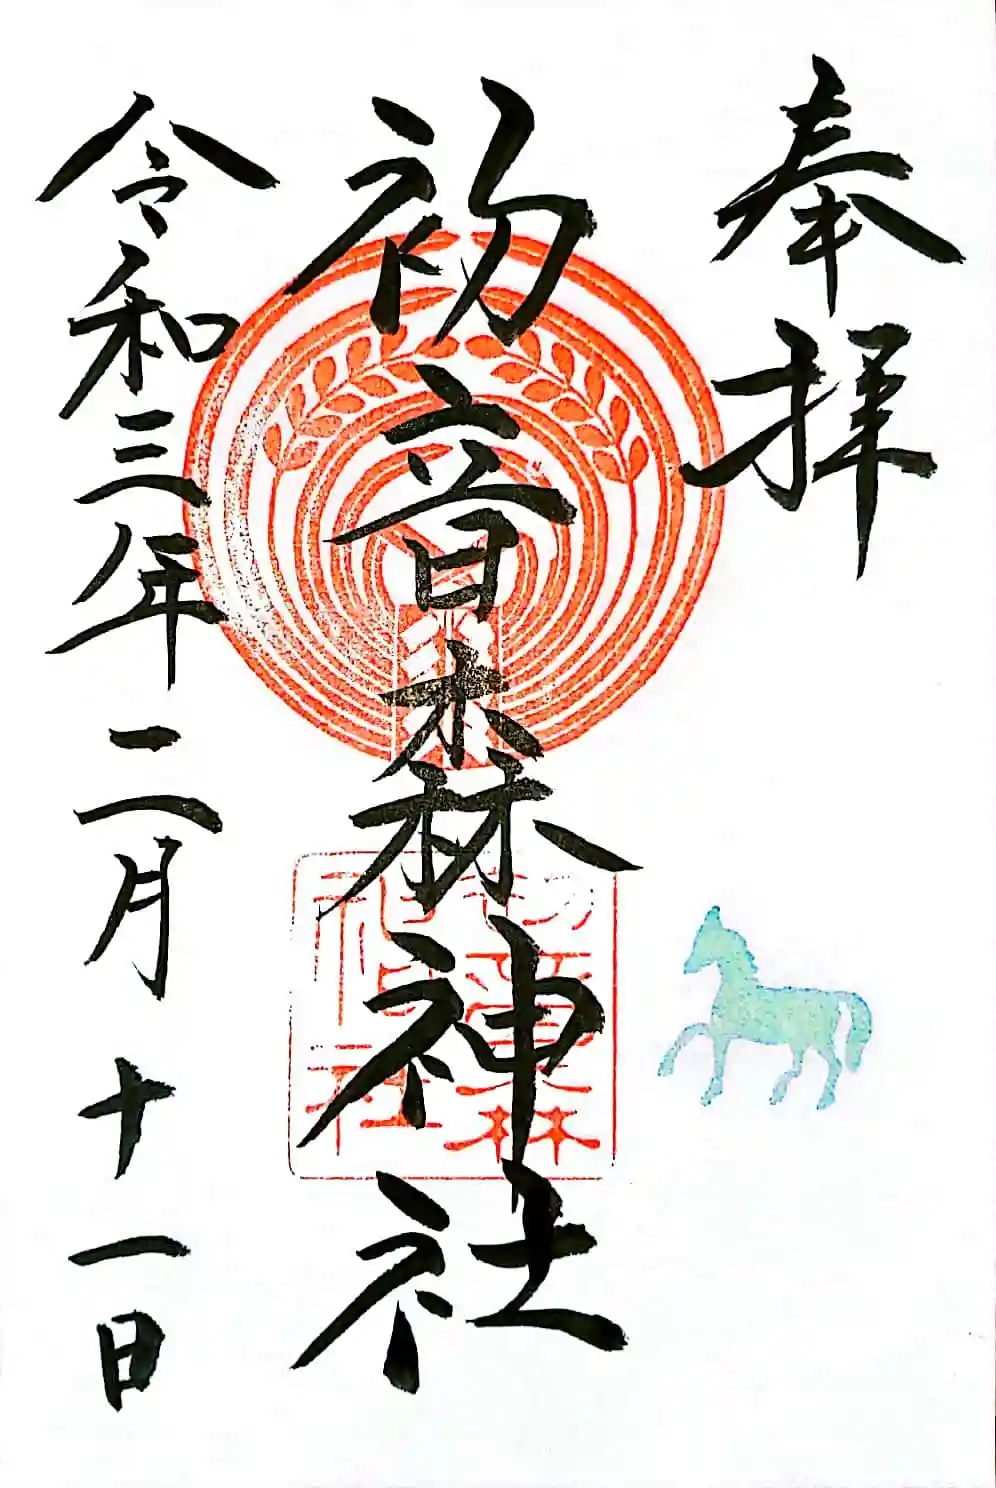 奉拝
初音森神社
初音森神社
令和三年二月十一日